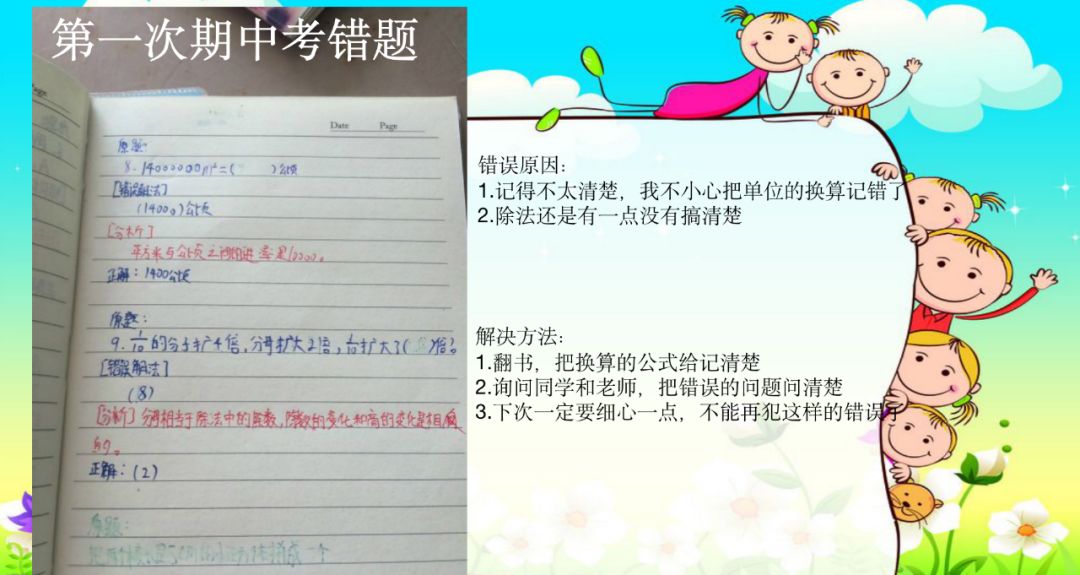 第一次期中考错题
Date Page
原题:
8. 14000000m²=( )公顷
[错误解法]
(1400。)公顷
[分析]
平方米与公顷之间的进率是10000。
正解：1400公顷
原题：
9. 1/10的分子扩4倍，分母扩大2倍，1/10扩大了( )倍。
[错误解法]
(8)
[分析] 分母相当于除法中的除数，除数的变化和商的变化是相反
的。
正解：(2)
原题：
错误原因：
1.记得不太清楚，我不小心把单位的换算记错了
2.除法还是有一点没有搞清楚
解决方法：
1.翻书，把换算的公式给记清楚
2.询问同学和老师，把错误的问题问清楚
3.下次一定要细心一点，不能再犯这样的错误了